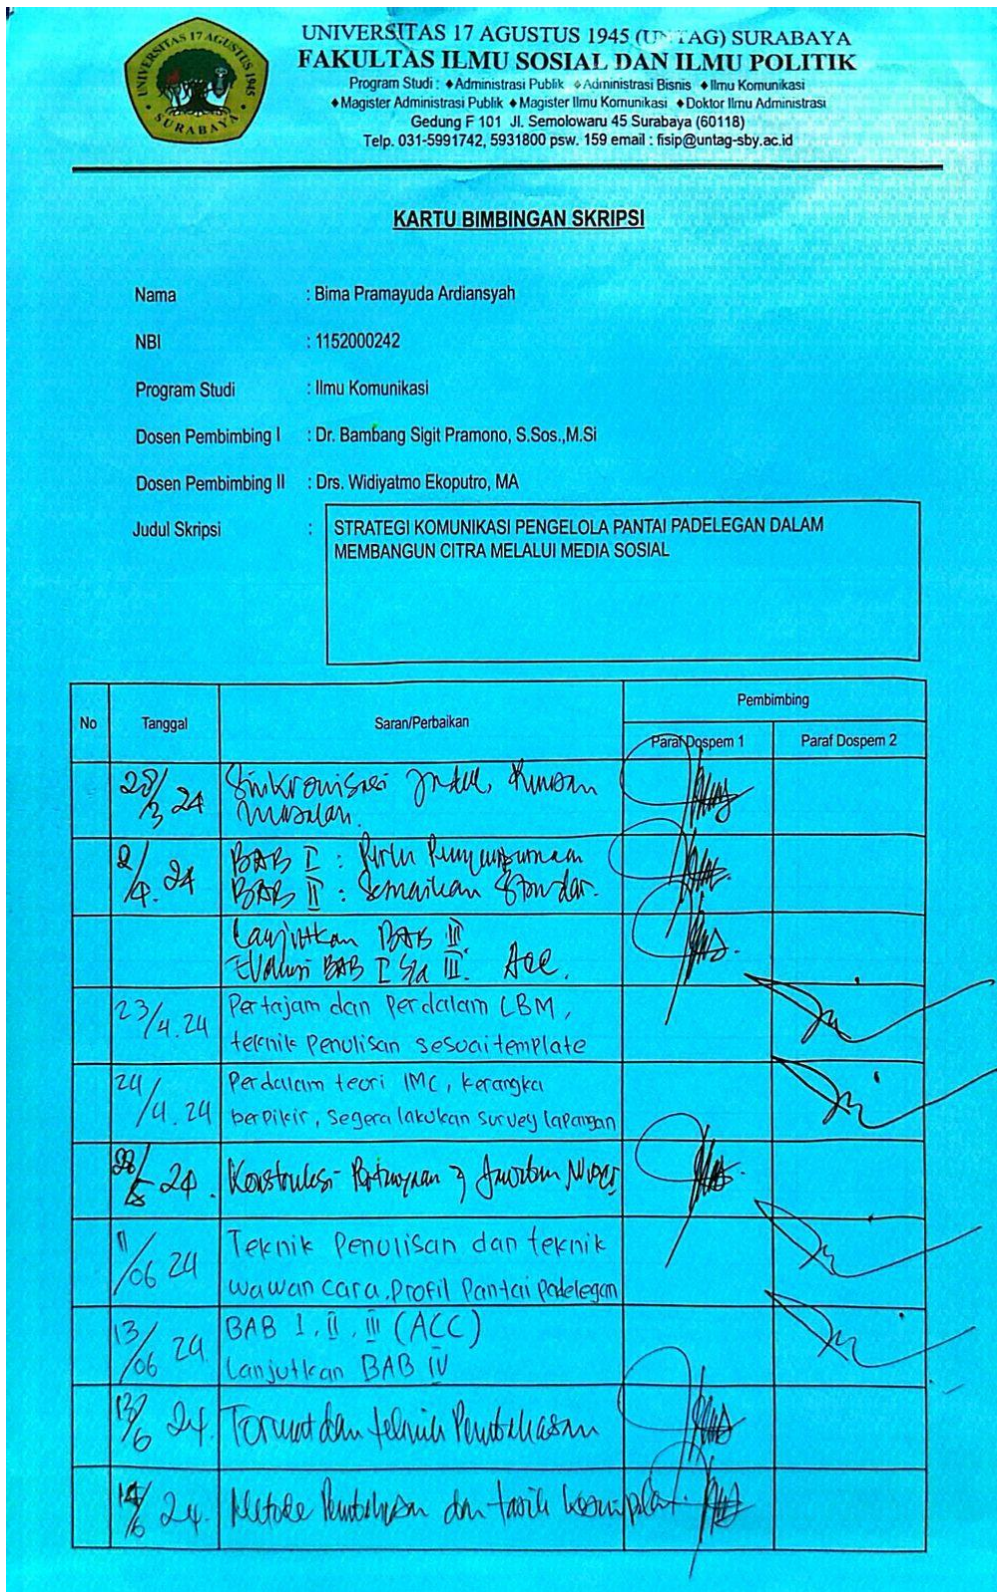 UNIVERSITAS 17 AGUSTUS 1945 (UNTAG) SURABAYA
FAKULTAS ILMU SOSIAL DAN ILMU POLITIK
Program Studi : ♦Administrasi Publik ♦Administrasi Bisnis ♦Ilmu Komunikasi
♦Magister Administrasi Publik ♦Magister Ilmu Komunikasi ♦Doktor Ilmu Administrasi
Gedung F 101 Jl. Semolowaru 45 Surabaya (60118)
Telp. 031-5991742, 5931800 psw. 159 email : fisip@untag-sby.ac.id
UNIVERSITAS 17 AGUSTUS 1945
SURABAYA
KARTU BIMBINGAN SKRIPSI
Nama : Bima Pramayuda Ardiansyah
NBI : 1152000242
Program Studi : Ilmu Komunikasi
Dosen Pembimbing I : Dr. Bambang Sigit Pramono, S.Sos.,M.Si
Dosen Pembimbing II : Drs. Widiyatmo Ekoputro, MA
Judul Skripsi : STRATEGI KOMUNIKASI PENGELOLA PANTAI PADELEGAN DALAM
MEMBANGUN CITRA MELALUI MEDIA SOSIAL
No Tanggal Saran/Perbaikan Pembimbing
Paraf Dospem 1 Paraf Dospem 2
Sinkronisasi
24
2/4.24 BAB I : Perlu
BAB II : Standar.
Lanjutkan BAB III.
BAB I s/d III. Acc.
23/4.24 Pertajam dan Perdalam LBM,
teknik Penulisan sesuai template
24/4.24 Perdalam teori IMC, kerangka
berpikir, segera lakukan survey lapangan
24. Konstruksi
11/06 24 Teknik Penulisan dan teknik
wawancara. Profil Pantai Padelegan
13/06 24 BAB I, II, III (ACC)
Lanjutkan BAB IV
13/6 24. dan teknik Pembahasan
24. Metode Pembahasan dan